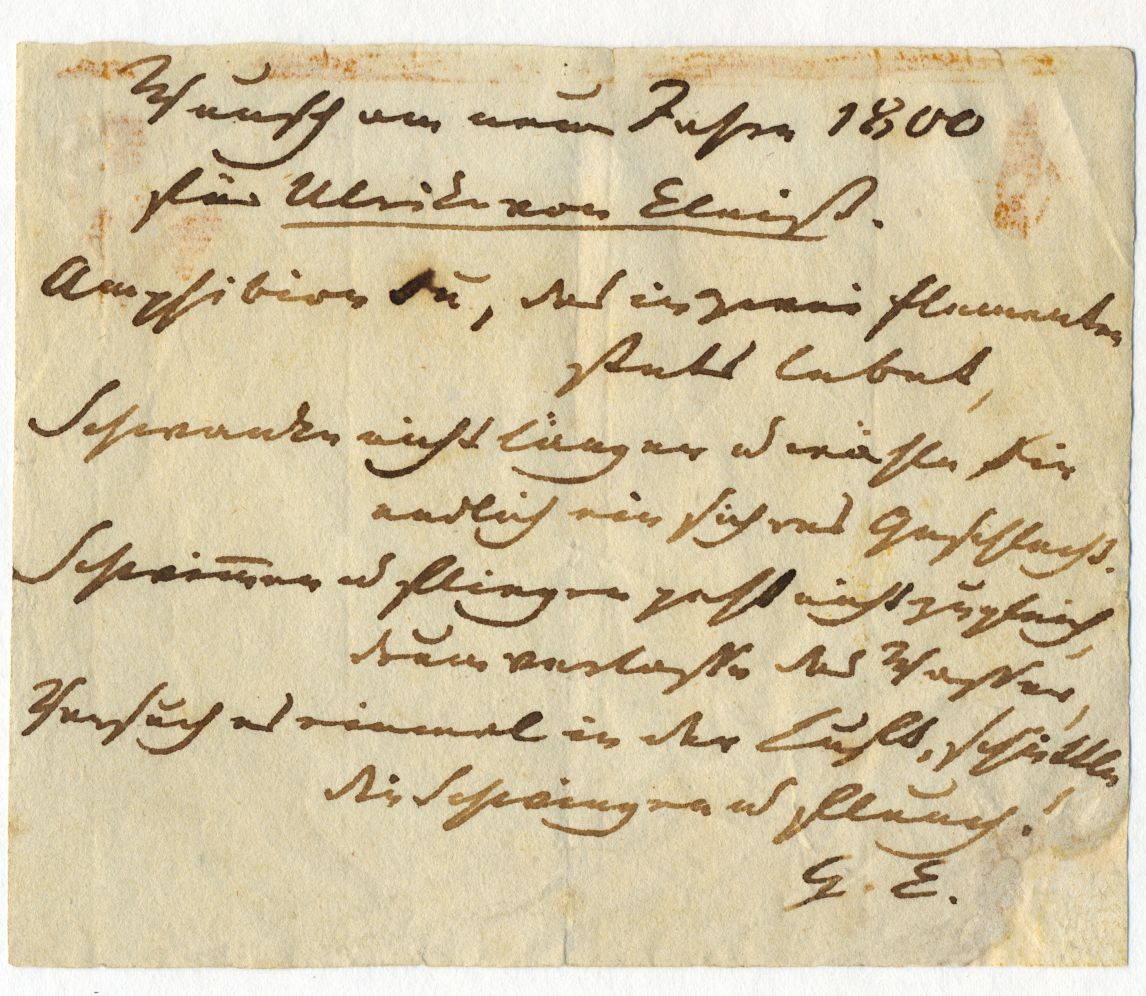 Wunsch am neuen Jahre 1800
für Ulrike von Kleist.
Amphibion Du, das in zwei Elementen
stets lebet,
Schwanke nicht länger u wähle Dir
endlich ein sichres Geschlecht.
Schwim̄en u fliegen geht nicht zugleich,
drum verlasse das Wasser,
Versuch es einmal in der Luft, schüttle
die Schwingen u fleuch!
H. K.